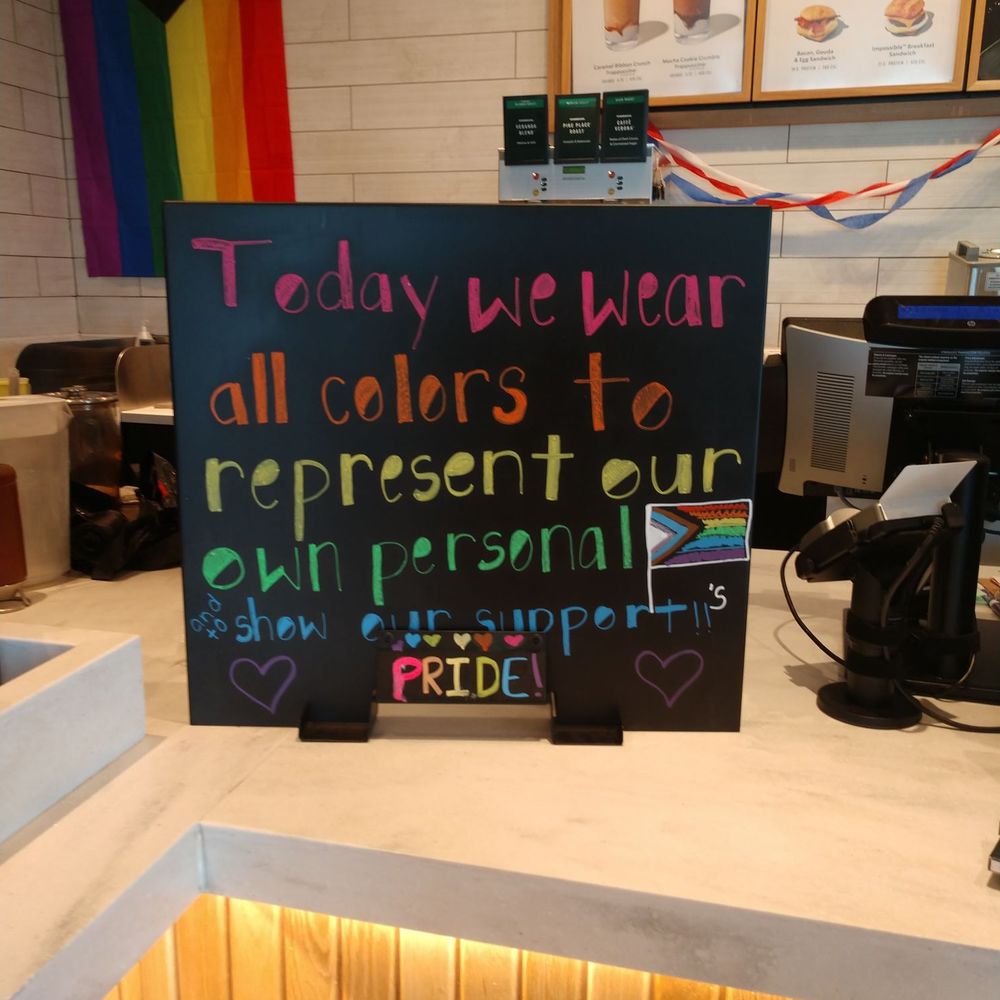 Caramel Ribbon Crunch
Frappuccino
Mocha Cookie Crumble
Frappuccino
Bacon, Gouda
& Egg Sandwich
Impossible™ Breakfast
Sandwich
VERANDA
BLEND
PIKE PLACE
ROAST
CAFFÈ
VERONA
hp
Today we wear
all colors to
represent our
own personal
's
and
show our support!!
PRIDE!